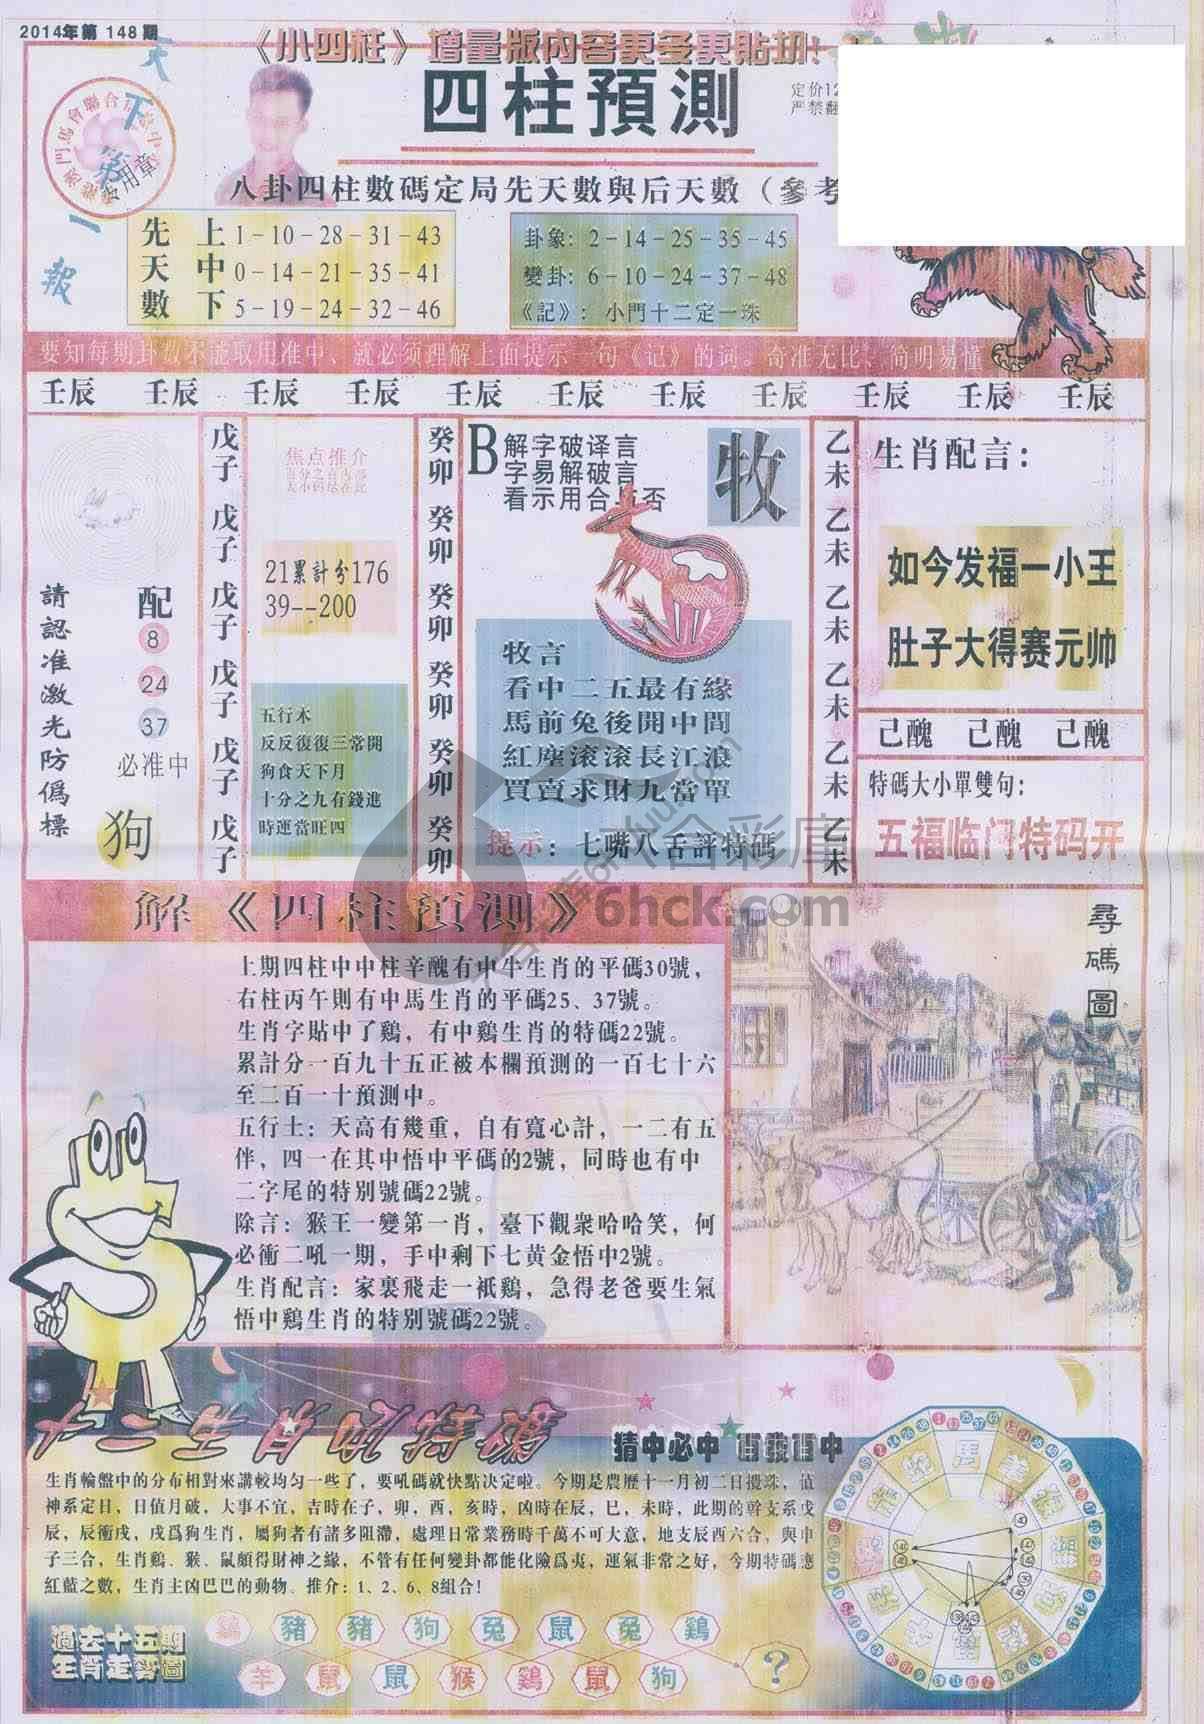 2014年第 148 期
《小四柱》增量版内容更多更貼切!
天下第一報
四柱預測
定价12
严禁翻
八卦四柱數碼定局先天數與后天數（參考
先天數
上 1－10－28－31－43
中 0－14－21－35－41
下 5－19－24－32－46
卦象: 2－14－25－35－45
變卦: 6－10－24－37－48
《記》: 小門十二定一珠
要知每期卦数不能取用准中、就必须理解上面提示一句《记》的词。奇准无比、简明易懂
壬辰 壬辰 壬辰 壬辰 壬辰 壬辰 壬辰 壬辰 壬辰 壬辰 壬辰
請認准激光防僞標
配
8
24
37
必准中
狗
戊子 戊子 戊子 戊子 戊子 戊子
焦点推介
21累計分176
39--200
五行木
反反復復三常開
狗食天下月
十分之九有錢進
時運當旺四
癸卯 癸卯 癸卯 癸卯 癸卯 癸卯
B 解字破译言
字易解破言
看示用合与否
牧
牧言
看中二五最有緣
馬前兔後開中間
紅塵滚滚長江浪
買賣求財九當單
提示: 七嘴八舌評特碼
乙未 乙未 乙未 乙未 乙未 乙未
生肖配言:
如今发福一小王
肚子大得赛元帅
己醜 己醜 己醜
特碼大小單雙句:
五福临门特码开
六合彩庫
6hck.com
解《四柱預測》
上期四柱中中柱辛醜有中牛生肖的平碼30號，
右柱丙午則有中馬生肖的平碼25、37號。
生肖字貼中了鷄，有中鷄生肖的特碼22號。
累計分一百九十五正被本欄預測的一百七十六
至二百一十預測中。
五行土: 天高有幾重，自有寬心計，一二有五
伴，四一在其中悟中平碼的2號，同時也有中
二字尾的特别號碼22號。
除言: 猴王一變第一肖，臺下觀衆哈哈笑，何
必衝二吼一期，手中剩下七黄金悟中2號。
生肖配言: 家裏飛走一衹鷄，急得老爸要生氣
悟中鷄生肖的特别號碼22號。
尋碼圖
猜中必中 百發百中
生肖輪盤中的分布相對來講較均匀一些了，要吼碼就快點决定啦。今期是農歷十一月初二日攪珠，值
神系定日，日值月破，大事不宜，吉時在子，卯，酉，亥時，凶時在辰，巳，未時，此期的幹支系戊
辰，辰衝戌，戌爲狗生肖，屬狗者有諸多阻滯，處理日常業務時千萬不可大意，地支辰酉六合，與申
子三合，生肖鷄、猴、鼠頗得財神之緣，不管有任何變卦都能化險爲夷，運氣非常之好，今期特碼應
紅藍之數，生肖主凶巴巴的動物。推介: 1、2、6、8組合!
過去十五期
生肖走勢圖
鷄 豬 豬 狗 兔 鼠 兔 鷄
羊 鼠 鼠 猴 鷄 鼠 狗 ?